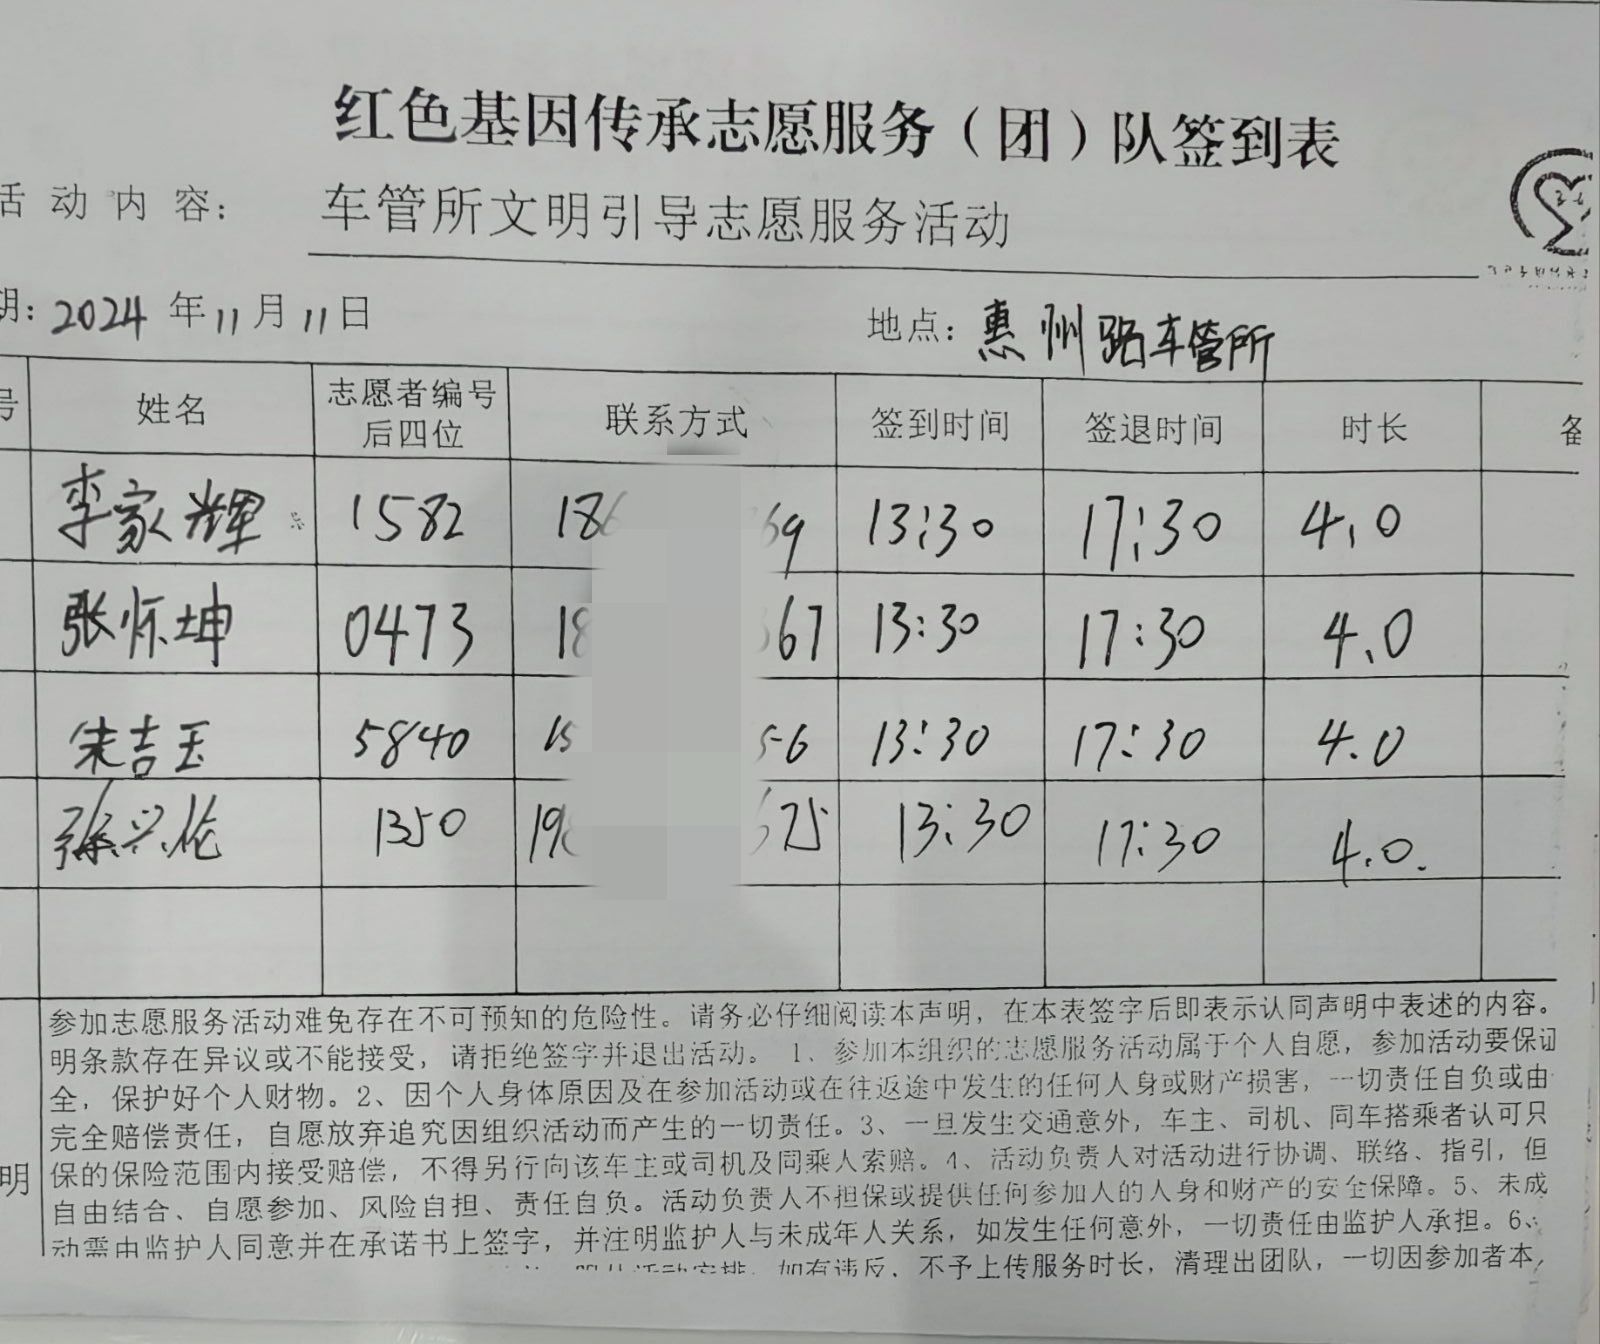 红色基因传承志愿服务（团）队签到表
活动内容： 车管所文明引导志愿服务活动
期：2024年11月11日 地点：惠州路车管所
号 姓名 志愿者编号后四位 联系方式 签到时间 签退时间 时长 备
李家辉 1582 186 69 13:30 17:30 4.0
张怀坤 0473 18 367 13:30 17:30 4.0
朱吉玉 5840 15 56 13:30 17:30 4.0
张兴伦 1350 19 675 13:30 17:30 4.0.
参加志愿服务活动难免存在不可预知的危险性。请务必仔细阅读本声明，在本表签字后即表示认同声明中表述的内容。
明条款存在异议或不能接受，请拒绝签字并退出活动。1、参加本组织的志愿服务活动属于个人自愿，参加活动要保证
全，保护好个人财物。2、因个人身体原因及在参加活动或在往返途中发生的任何人身或财产损害，一切责任自负或由
完全赔偿责任，自愿放弃追究因组织活动而产生的一切责任。3、一旦发生交通意外，车主、司机、同车搭乘者认可只
保的保险范围内接受赔偿，不得另行向该车主或司机及同乘人索赔。4、活动负责人对活动进行协调、联络、指引，但
明 自由结合、自愿参加、风险自担、责任自负。活动负责人不担保或提供任何参加人的人身和财产的安全保障。5、未成
动需由监护人同意并在承诺书上签字，并注明监护人与未成年人关系，如发生任何意外，一切责任由监护人承担。6、
服从活动安排，如有违反，不予上传服务时长，清理出团队，一切因参加者本